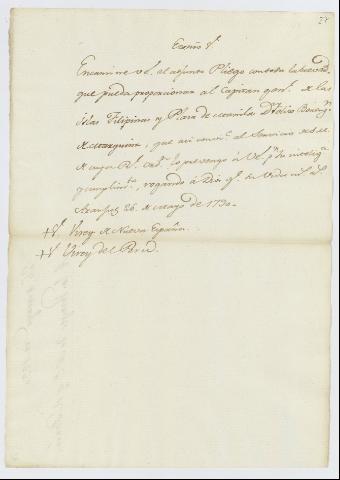 27
Exmo Sr.
Encamine V.E. el adjunto Pliego con toda la brevedad
que pueda proporcionar al Capitan genl. de las
islas Filipinas y Plaza de Manila Dn. Felix Bereng.r
de Marquina, que asi convie. al Servicio de S.M.
de cuya Rl. ordn. lo prevengo à V.E. pa. su intelig.a
y cumplimto., rogando à Dios gue. su Vida ms. as.
Aranjuez 26. de Mayo de 1790.
Sr. Virrey de Nueva España.
Sr. Virrey del Perú.